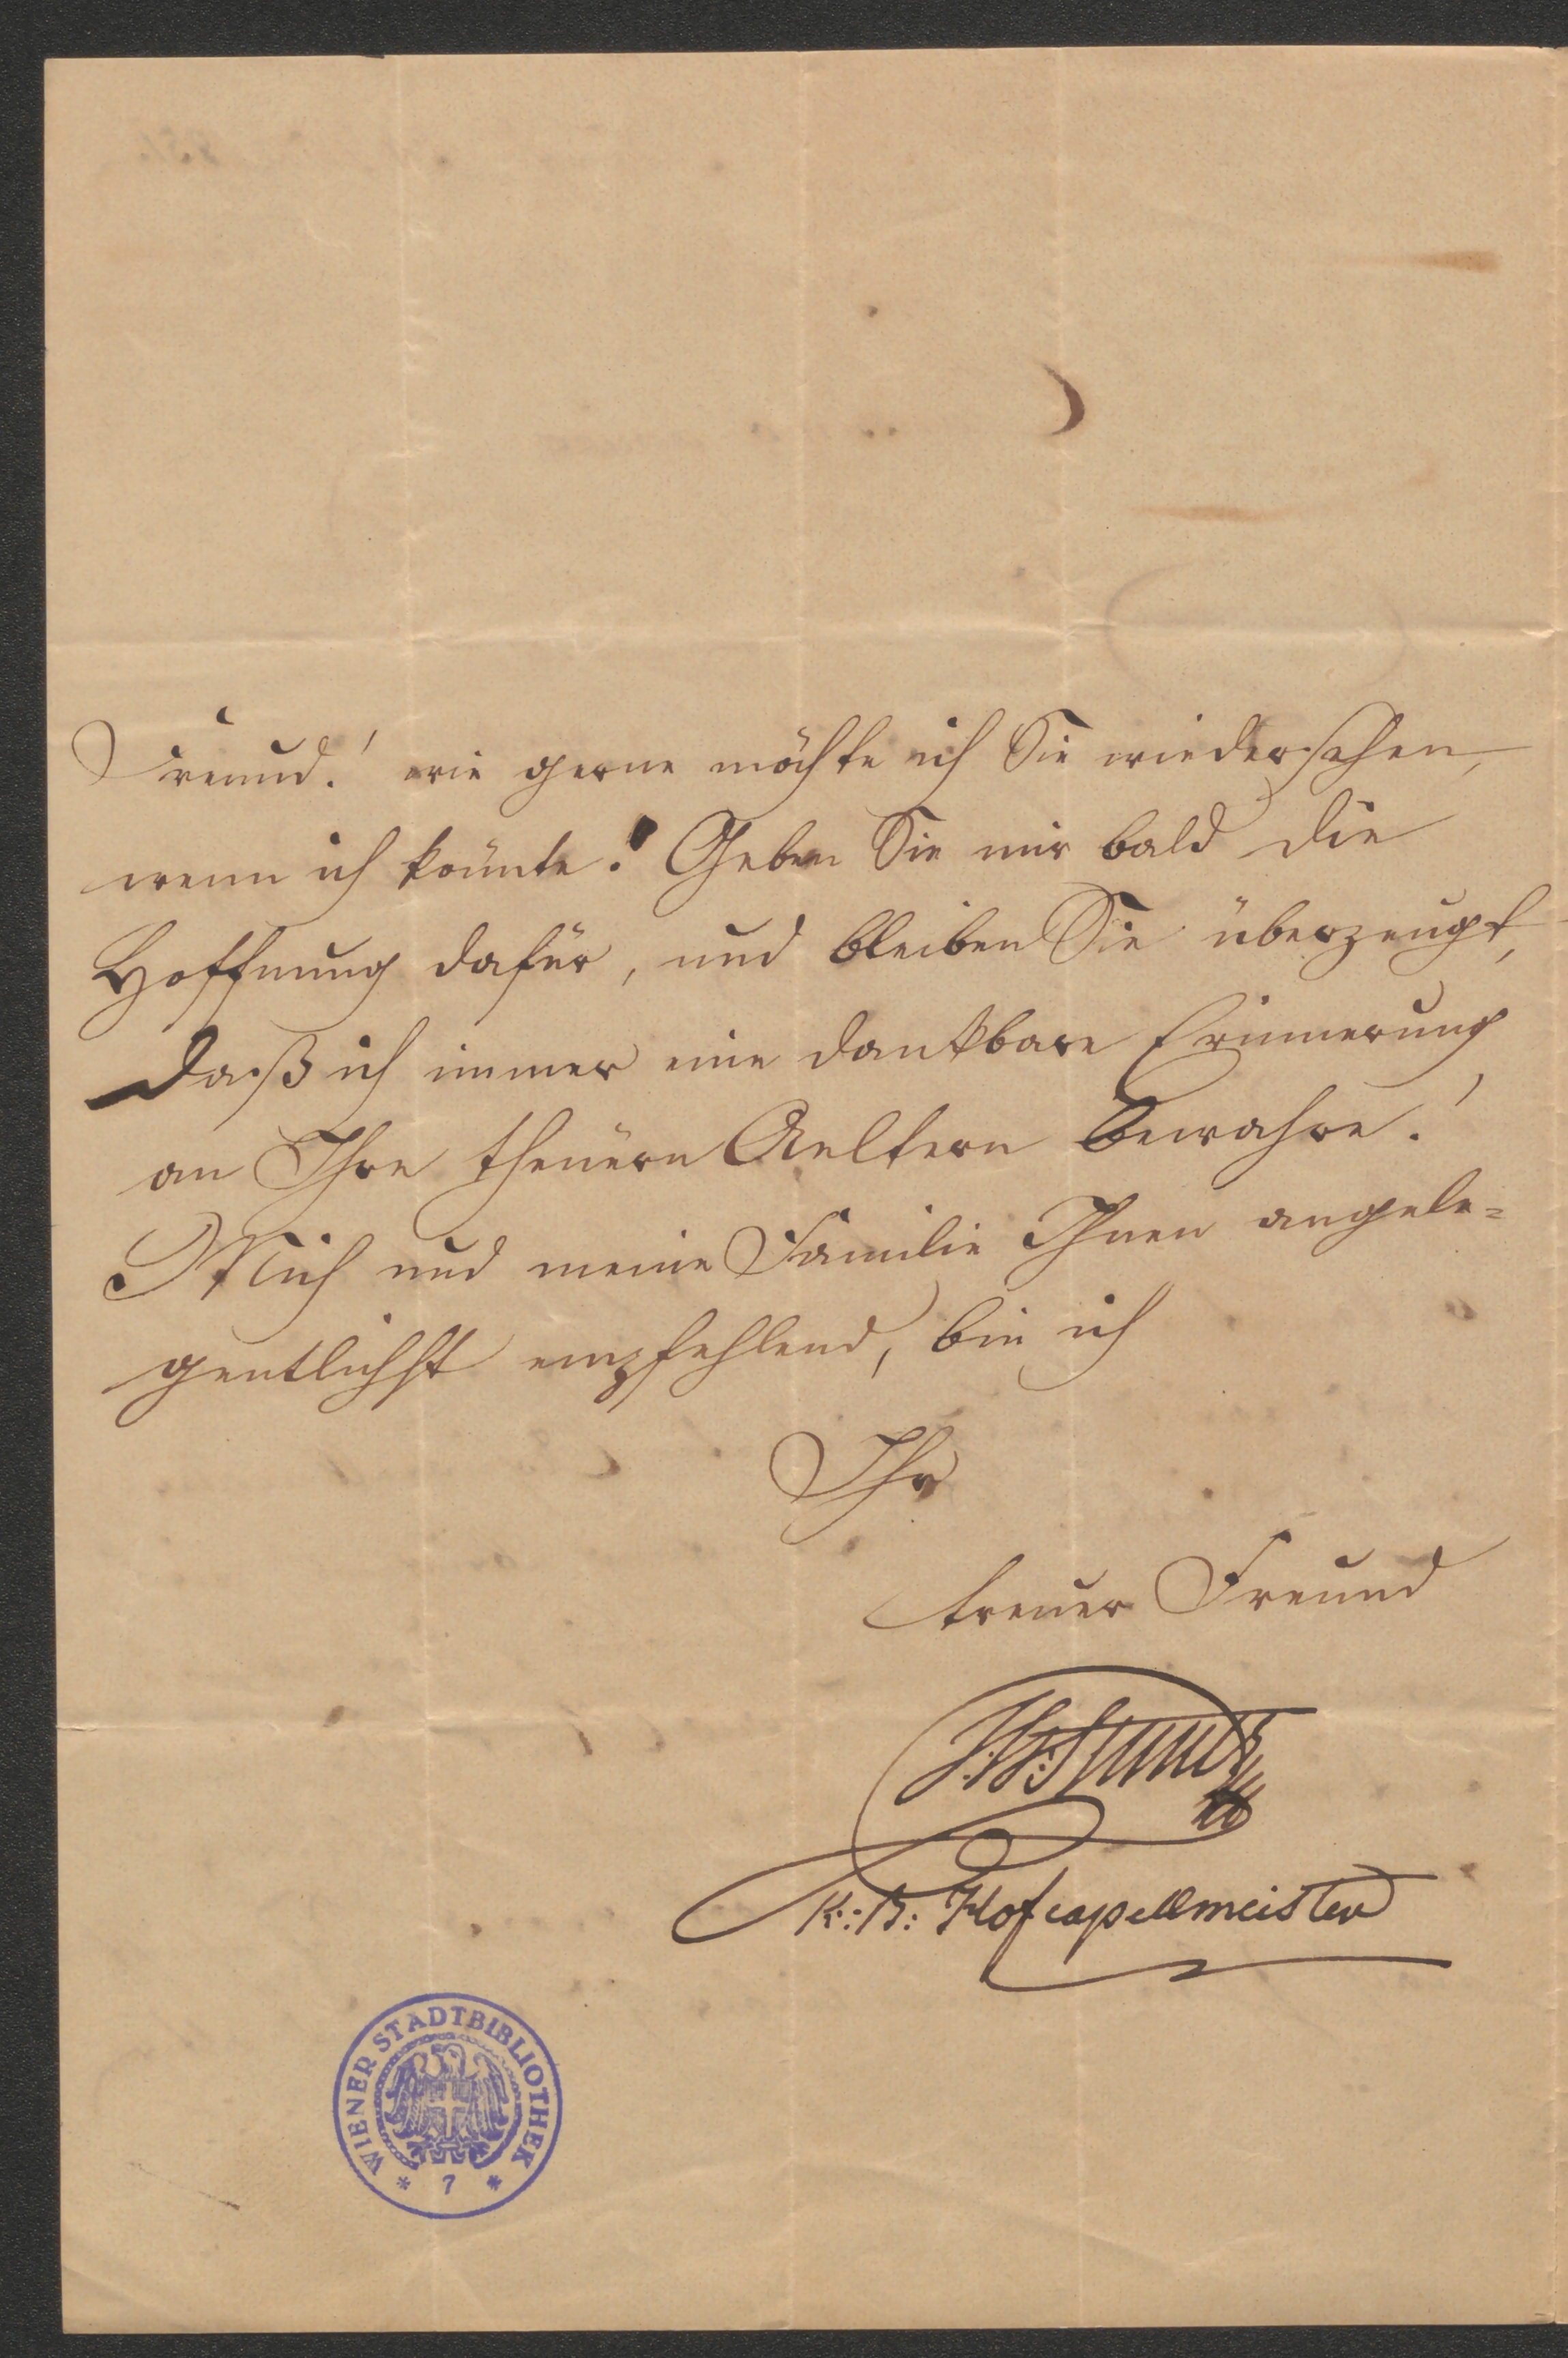 Freund! wie gerne möchte ich Sie wiedersehen,
wenn ich könnte! Geben Sie mir bald die
Hoffnung dafür, und bleiben Sie überzeugt,
daß ich immer eine dankbare Erinnerung
an Ihre theuern Aeltern bewahre!
Mich und meine Familie Ihnen angele=
gentlichst empfehlend, bin ich
Ihr
treuer Freund
K: B: Hofcapellmeister
WIENER STADTBIBLIOTHEK
* 7 *